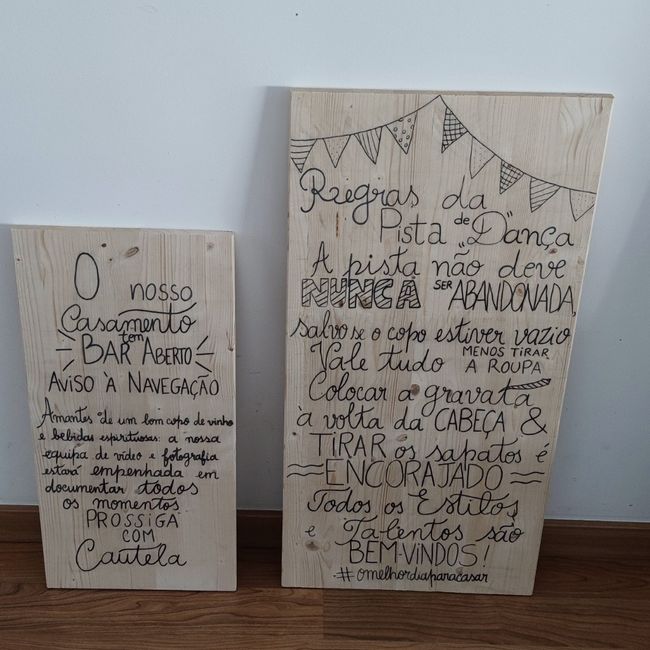 O nosso
Casamento
tem
BAR ABERTO
AVISO À NAVEGAÇÃO
Amantes de um bom copo de vinho
e bebidas espirituosas: a nossa
equipa de vídeo e fotografia
estará empenhada em
documentar todos
os momentos
PROSSIGA
COM
Cautela
Regras da
Pista de "Dança
A pista não deve
NUNCA SER ABANDONADA,
salvo se o copo estiver vazio
Vale tudo MENOS TIRAR
A ROUPA
Colocar a gravata
à volta da CABEÇA &
TIRAR os sapatos é
ENCORAJADO
Todos os Estilos
e Talentos são
BEM-VINDOS!
#omelhordiaparacasar